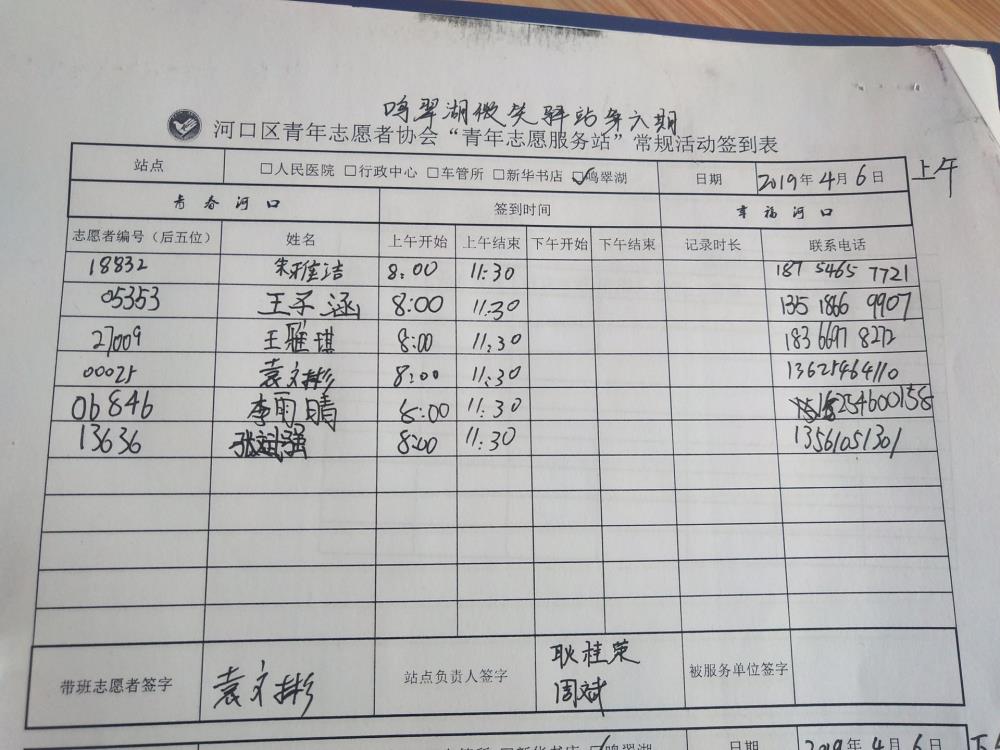 鸣翠湖微笑驿站第六期
河口区青年志愿者协会“青年志愿服务站”常规活动签到表
上午
站点 □人民医院 □行政中心 □车管所 □新华书店 ☑鸣翠湖 日期 2019年4月6日
青春河口 签到时间 幸福河口
志愿者编号（后五位） 姓名 上午开始 上午结束 下午开始 下午结束 记录时长 联系电话
18832 朱雅洁 8:00 11:30 187 5465 7721
05353 王子涵 8:00 11:30 1351866 9907
27009 王雅琪 8:00 11:30 183 6697 8272
00025 袁文彬 8:00 11:30 13625464110
06846 李雨晴 8:00 11:30 254600158
13636 张斌强 8:00 11:30 13561051301
带班志愿者签字 袁文彬 站点负责人签字 耿桂荣 周斌 被服务单位签字
车管所 □新华书店 ☑鸣翠湖 日期 2019年4月6日 下